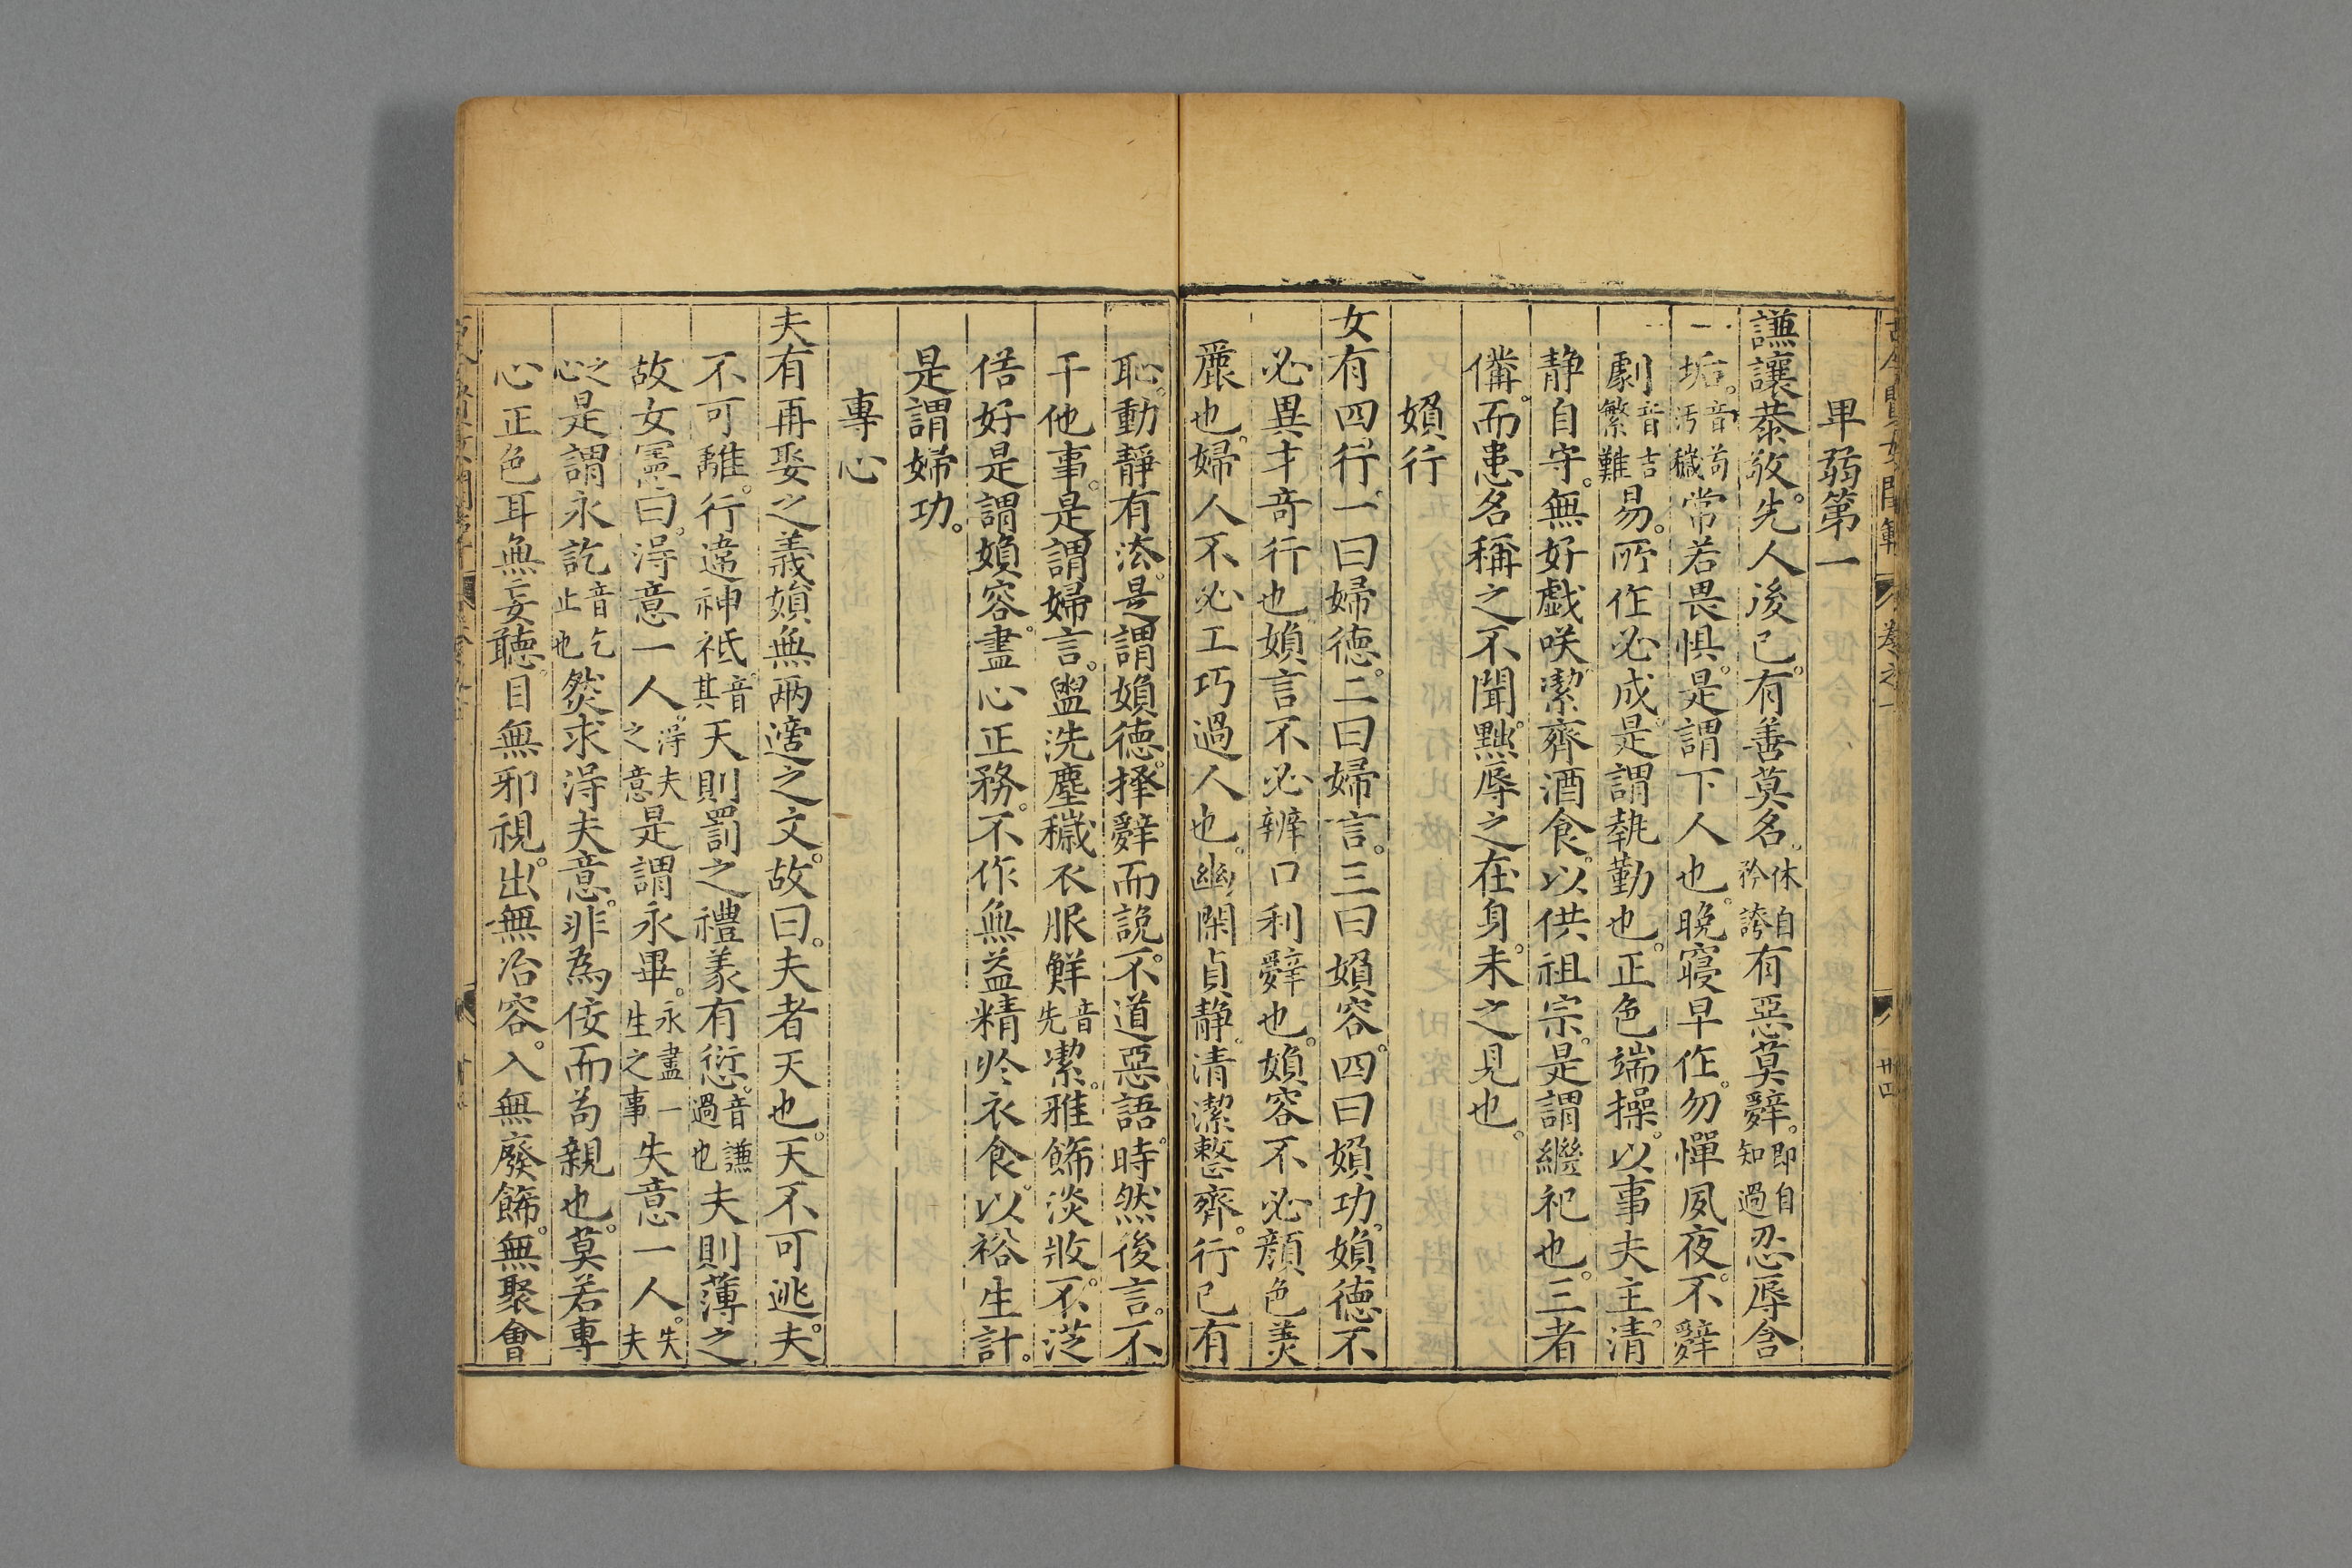 卑弱第一
謙讓恭敬。先人後己。有善莫名。休自矜誇有惡莫辭。即自知過忍辱含
垢。音苟汚穢常若畏惧。是謂下人也。晚寢早作。勿憚夙夜。不辭
劇音吉繁難易。所作必成。是謂執勤也。正色端操。以事夫主。清
静自守。無好戯咲。潔齊酒食。以供祖宗。是謂繼祀也。三者
俻。而患名稱之不聞。黙辱之在身。未之見也。
媍行
女有四行。一曰婦德。二曰婦言。三曰媍容。四曰媍功。媍德不
必異才竒行也。媍言不必辨口利辭也。媍容不必顔色羙
麗也。婦人不必工巧過人也。幽閑貞静。清潔整齊。行己有
恥。動靜有法。是謂媍德。擇辭而說。不道惡語。時然後言。不
干他事。是謂婦言。盥洗塵穢。衣服鮮音先潔。雅飾淡粧。不
偣好。是謂媍容。盡心正務。不作無益。精於衣食。以裕生計。
是謂婦功。
專心
夫有再娶之義。媍無兩適之文。故曰。夫者天也。天不可逃。夫
不可離。行違神祗。音其天則罰之。禮義有愆。音謙過也夫則薄之
故女憲曰。淂意一人。淂夫之意是謂永畢。永盡一生之事失意一人。失夫
之心是謂永訖。音乞止也然求淂夫意。非為佞而苟親也。莫若專
心正色。耳無妄聽。目無邪視。出無冶容。入無廢飾。無聚會